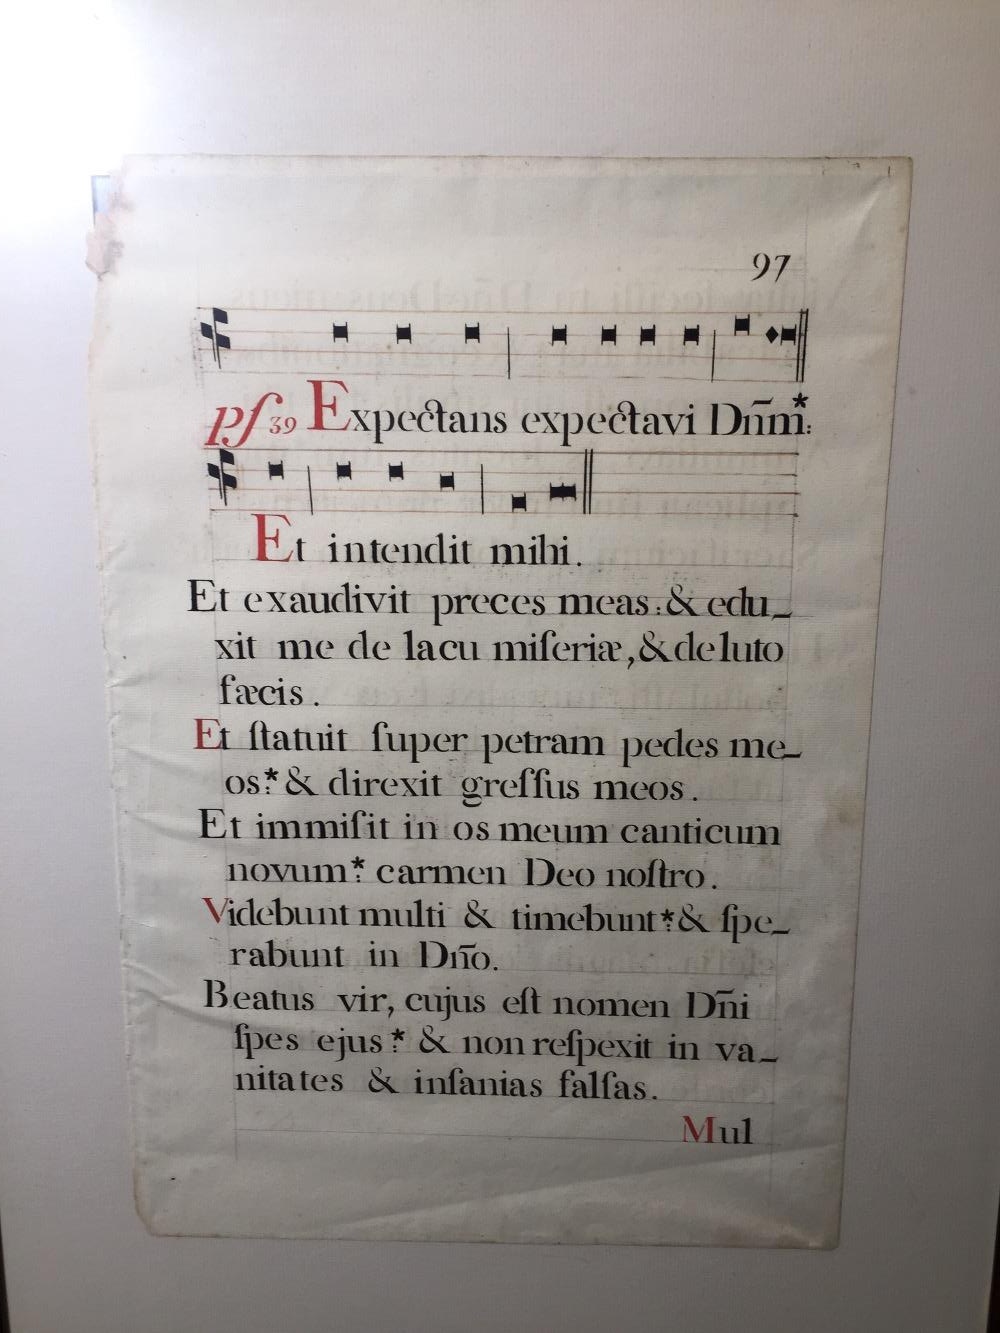 97
pſ 39 Expectans expectavi Dn̄m̄*:
Et intendit mihi.
Et exaudivit preces meas: & edu_
xit me de lacu miſeriæ, & de luto
fæcis.
Et ſtatuit ſuper petram pedes me_
os:* & direxit greſſus meos.
Et immiſit in os meum canticum
novum:* carmen Deo noſtro.
Videbunt multi & timebunt:* & ſpe_
rabunt in Dn̄o.
Beatus vir, cujus eſt nomen Dn̄i
ſpes ejus:* & non reſpexit in va_
nitates & inſanias falſas.
Mul